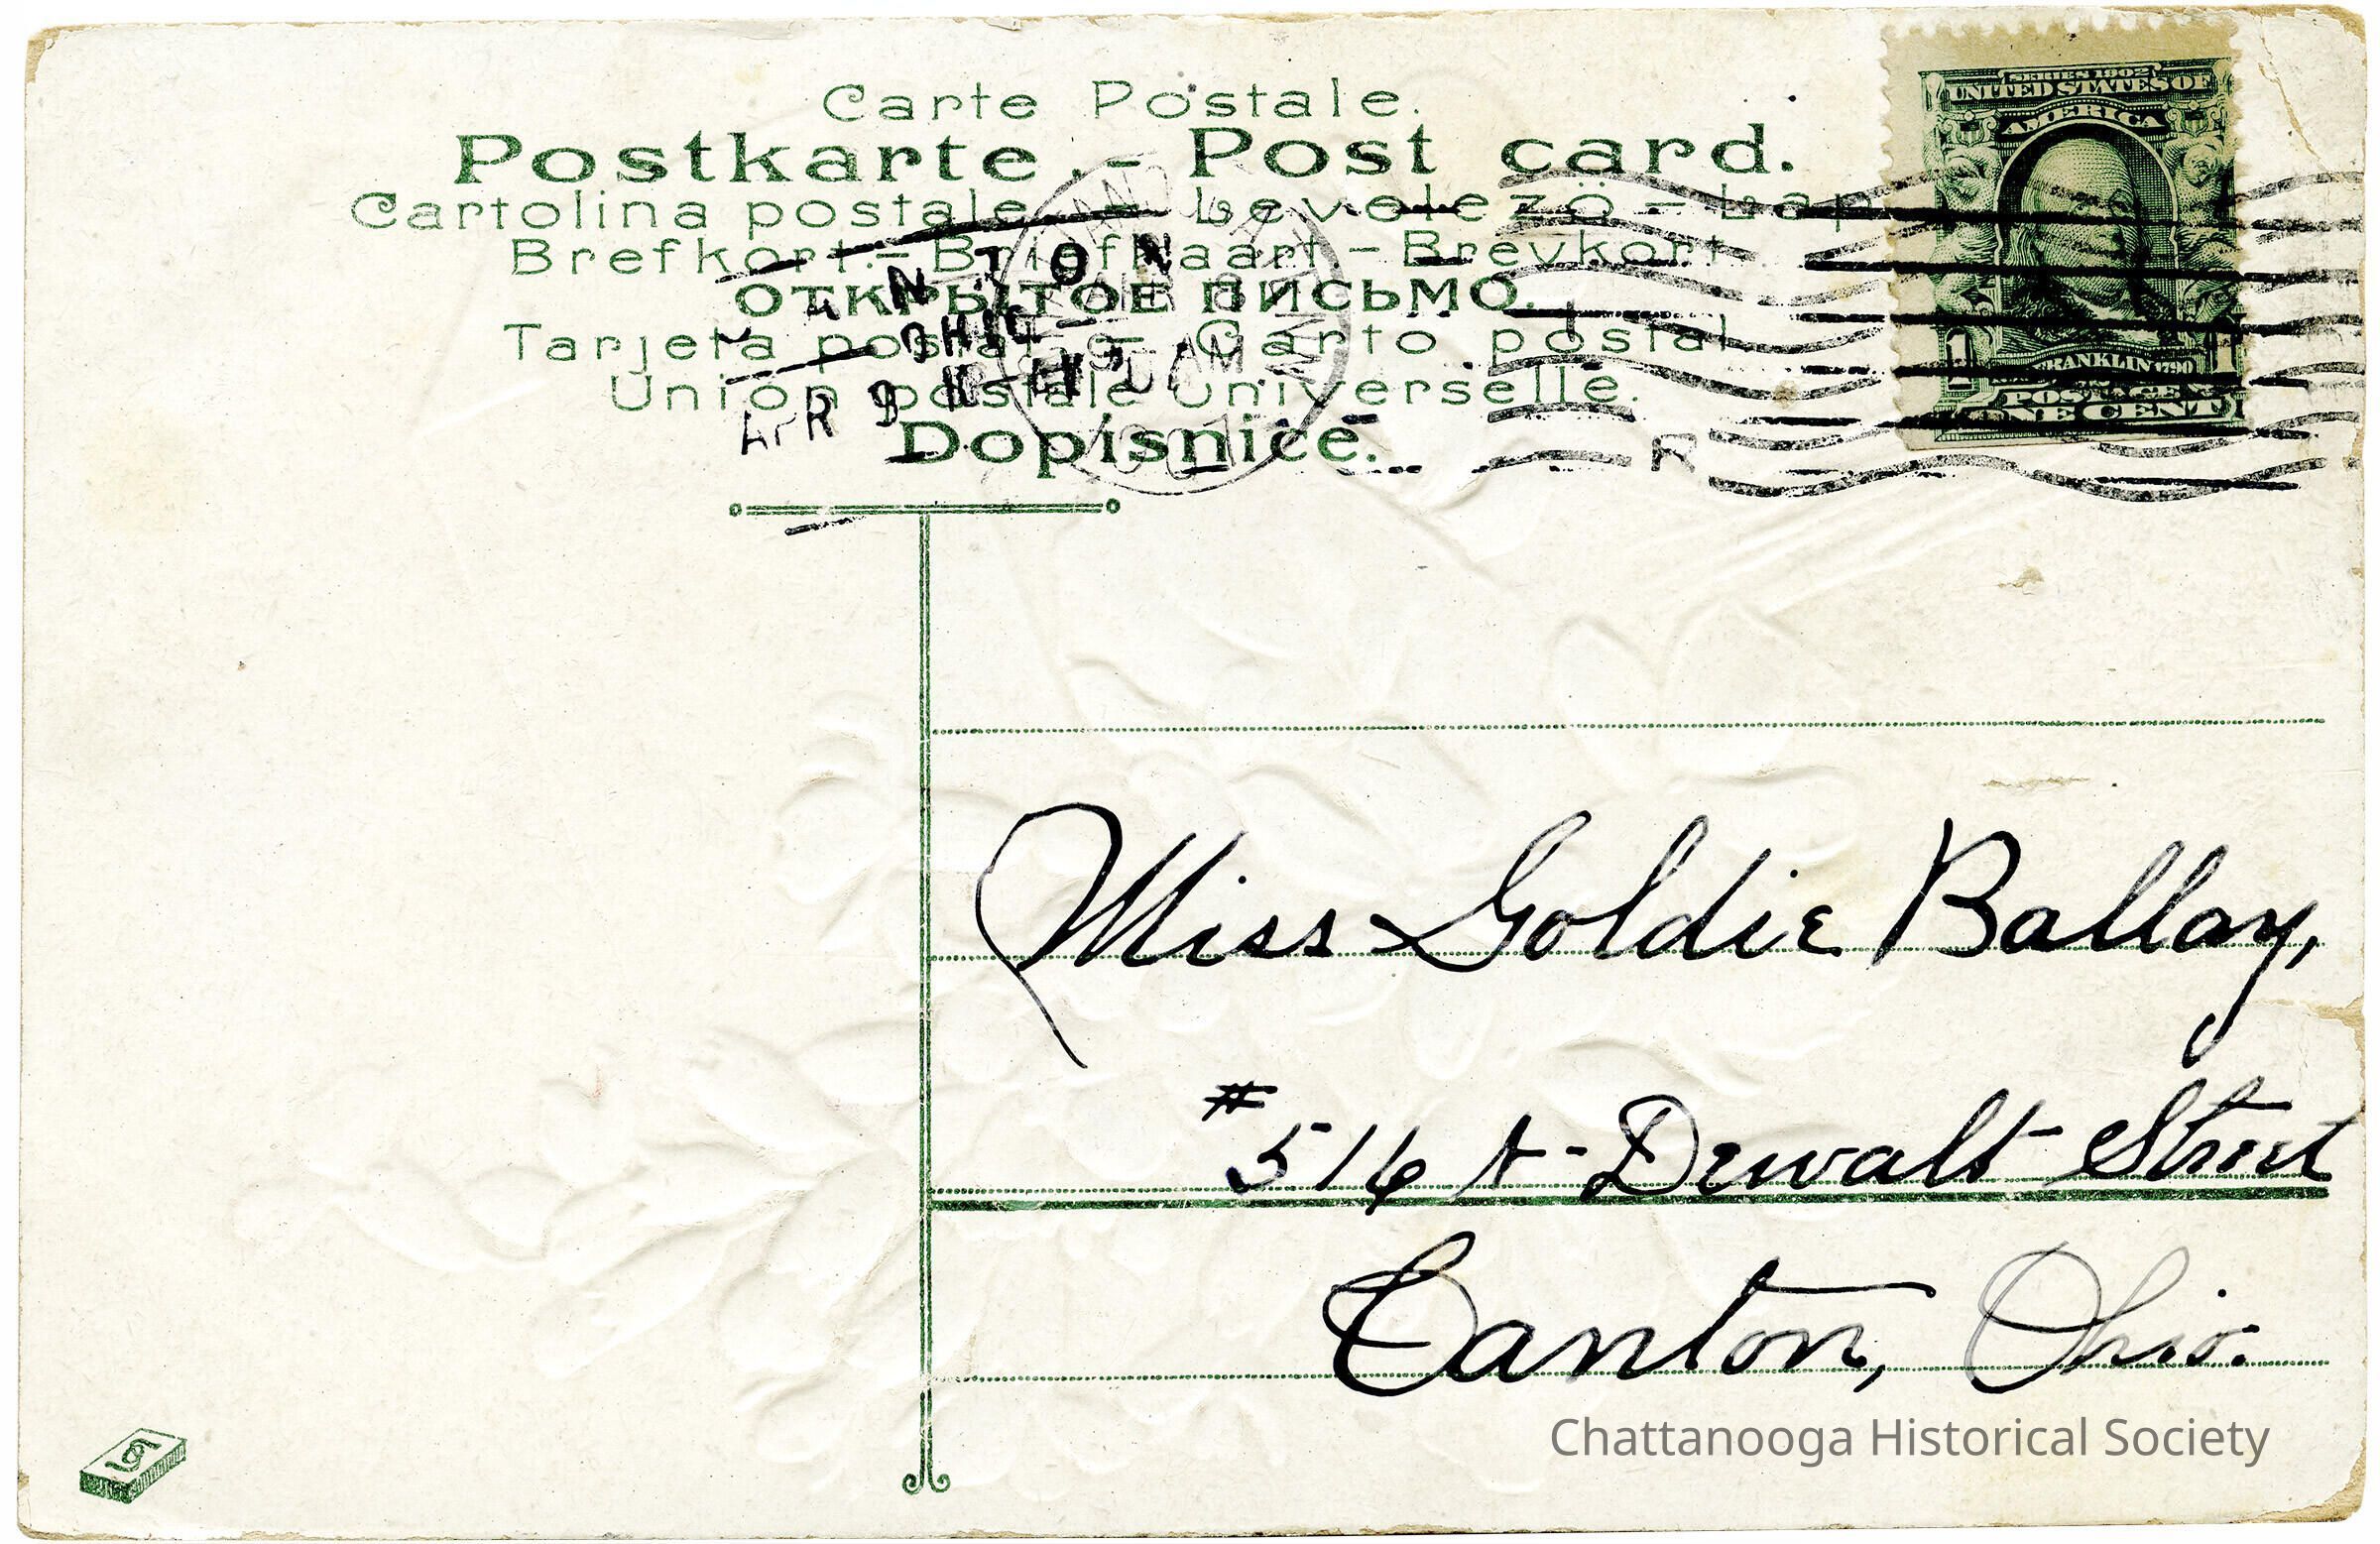 Carte Postale.
Postkarte. - Post card.
Cartolina postale - Levelezö - Lap
Brefkort. - Briefkaart - Brevkort
ОТКРЫТОЕ ПИСЬМО.
Tarjeta postal - Carto postal.
Union postale universelle.
Dopisnice.
CANTON
OHIO
APR 9
SERIES 1902
UNITED STATES OF
AMERICA
FRANKLIN 1790
1 1
POSTAGE
ONE CENT
R
Miss Goldie Ballay,
#516 N-Dewalt Street
Canton, Ohio.
Chattanooga Historical Society